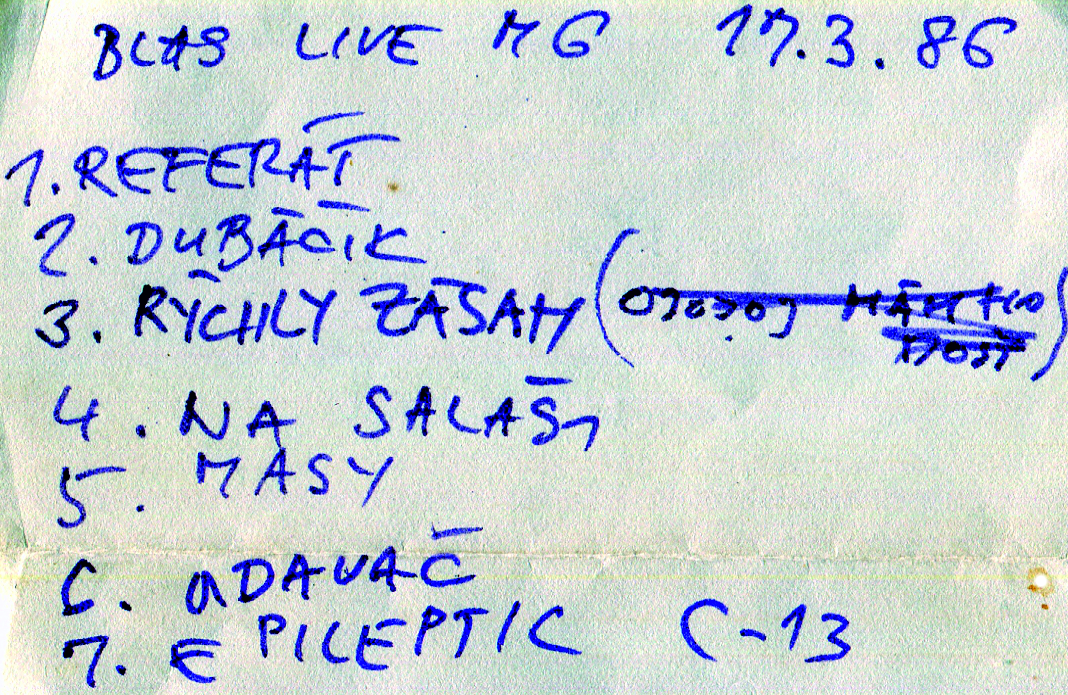 BLAS LIVE MG 17.3.86
1. REFERÁT
2. DUBÁČIK
3. RÝCHLY ZÁSAH (
4. NA SALAŠI
5. MASY
6. UDAVAČ
7. EPILEPTIC C-13